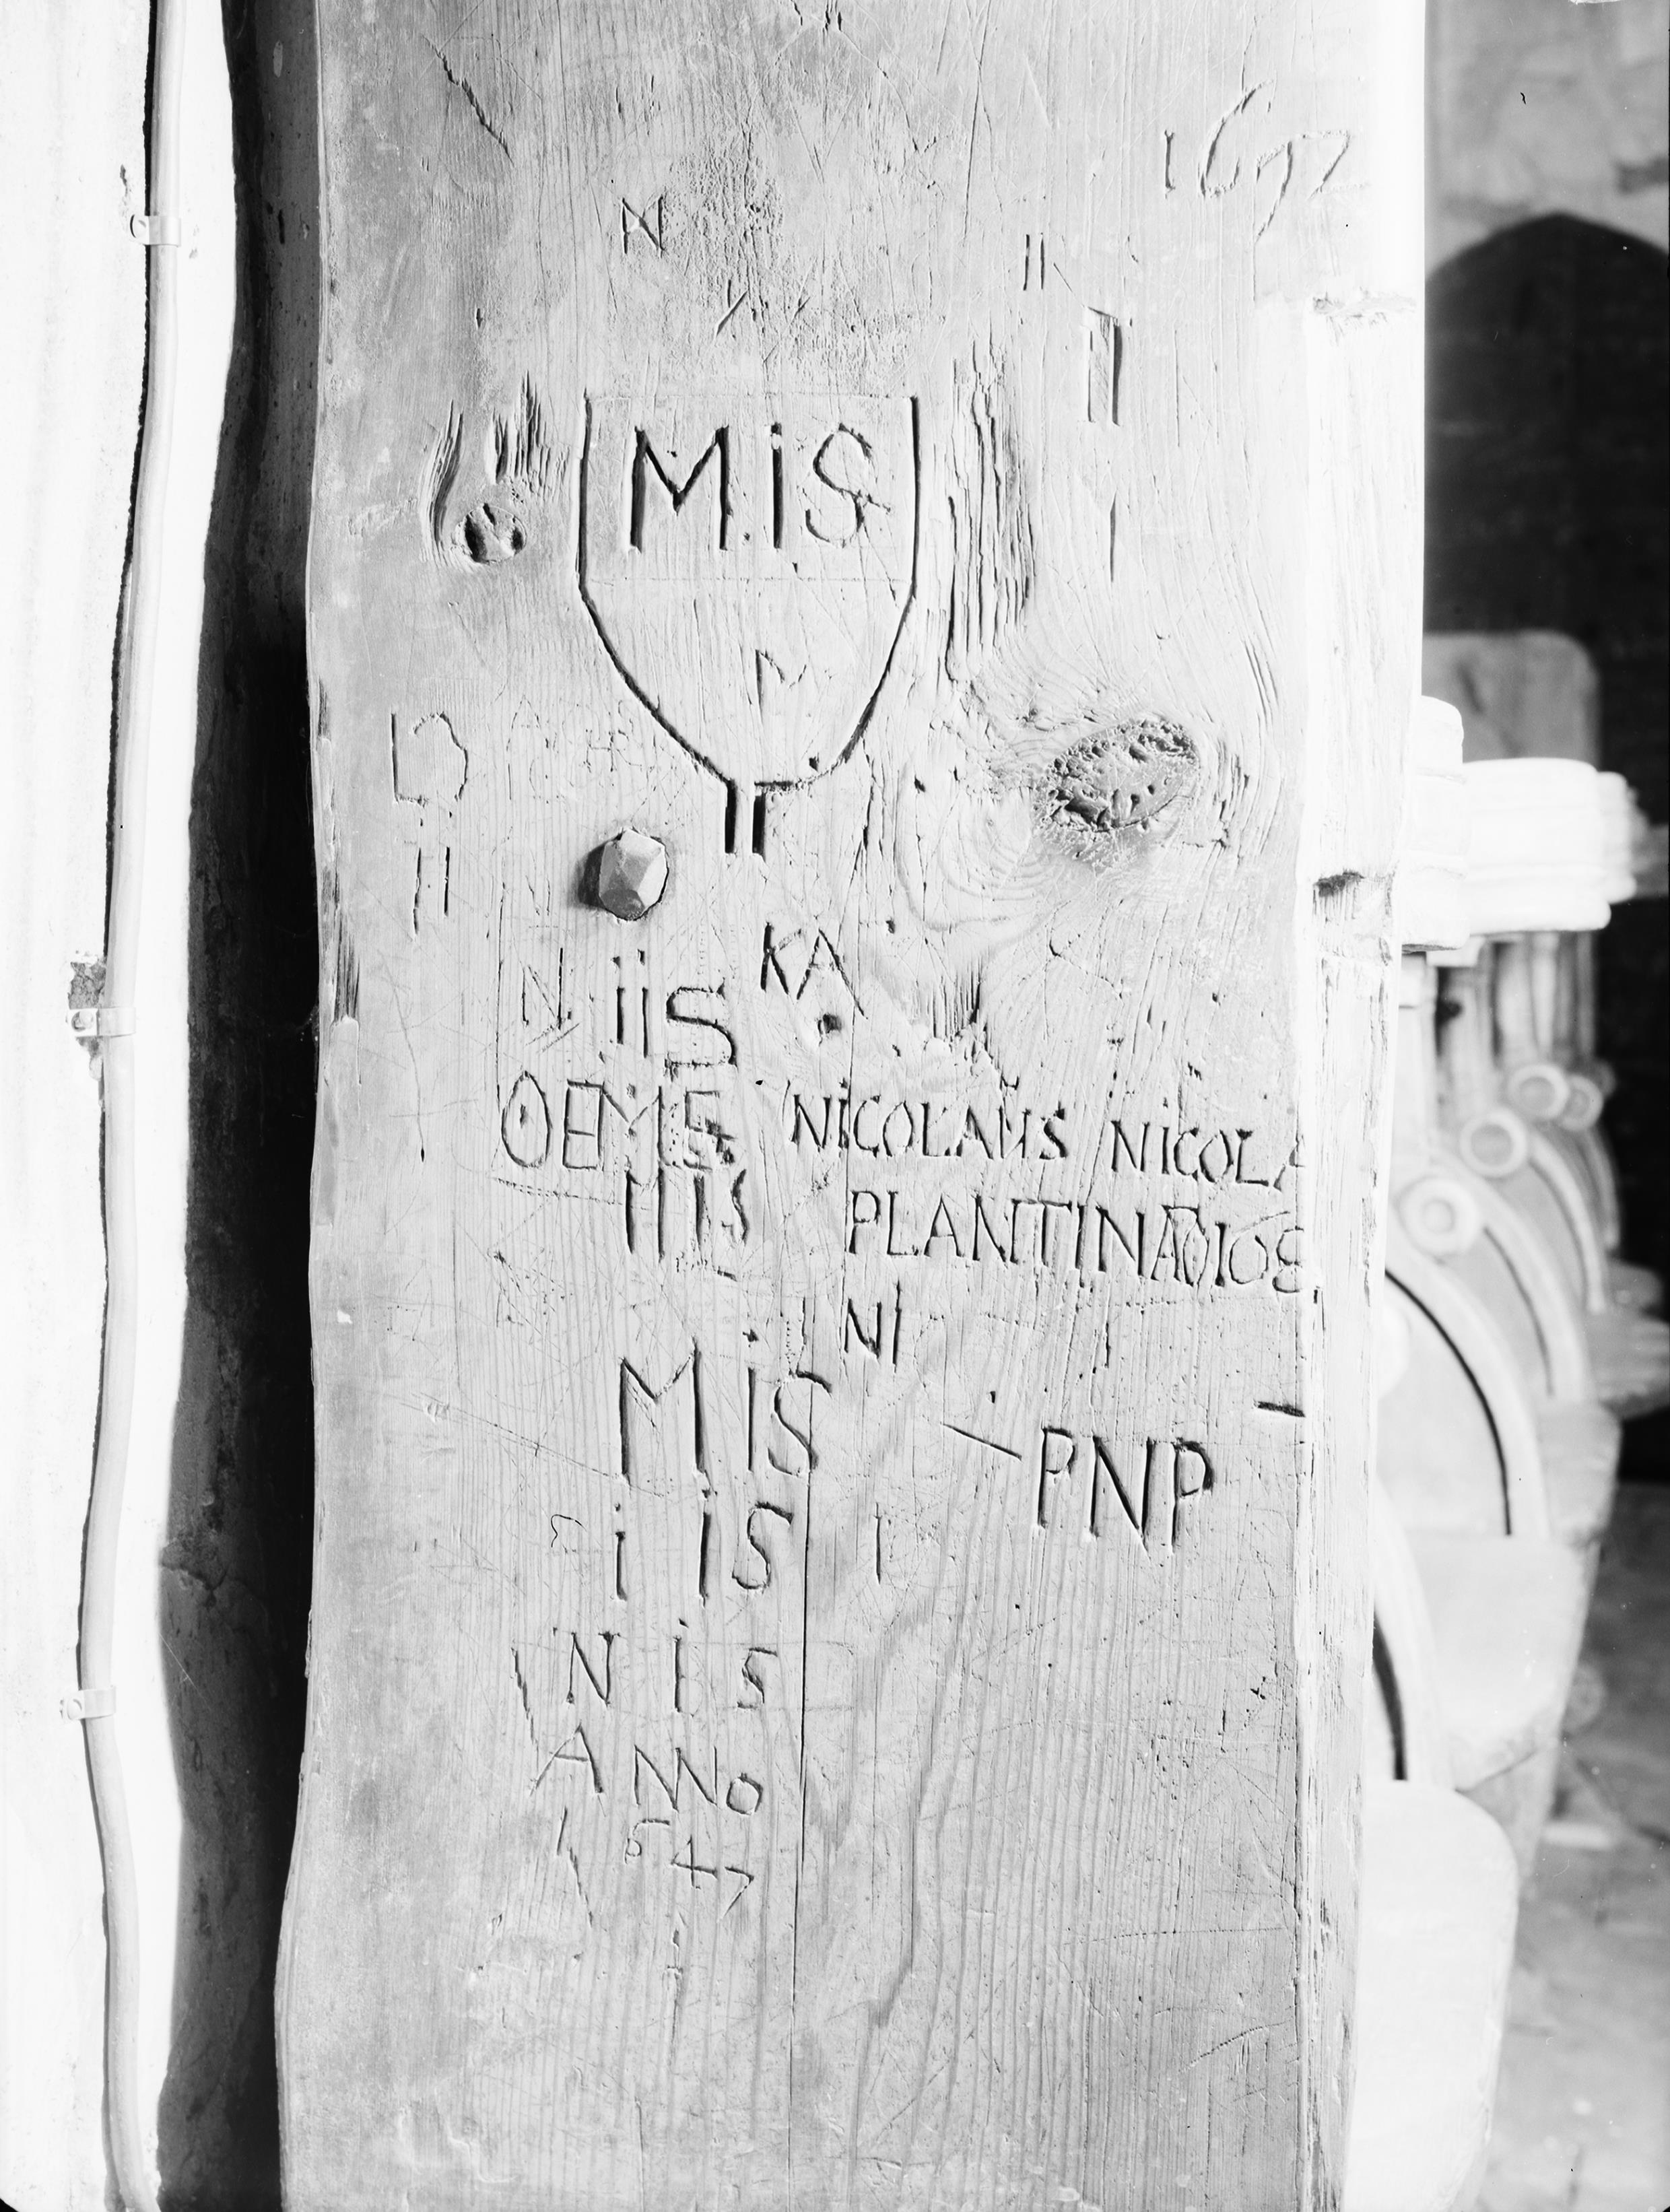 1672
N
II
M.iS
N. iiS
KA
OEMES
NiCOLAUS NICOLA
IIIS
PLANTINADIOS
NI
MiS
PNP
i iS
N i S
ANNo
1647